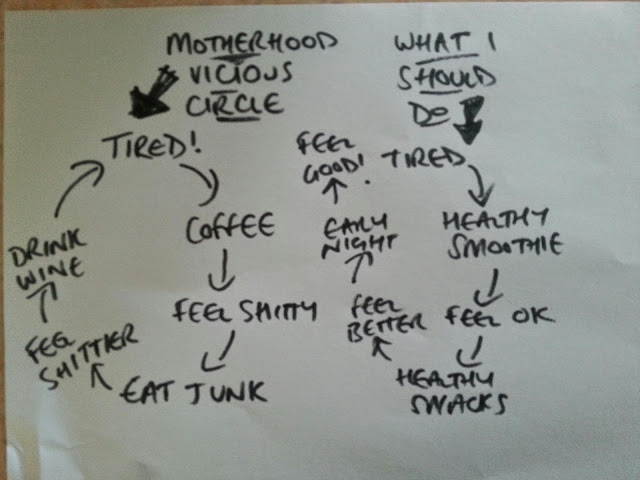 MOTHERHOOD
VICIOUS
CIRCLE
TIRED!
COFFEE
FEEL SHITTY
EAT JUNK
FEEL
SHITTIER
DRINK
WINE
WHAT I
SHOULD
DO
TIRED
HEALTHY
SMOOTHIE
FEEL OK
HEALTHY
SNACKS
FEEL
BETTER
EARLY
NIGHT
FEEL
GOOD!